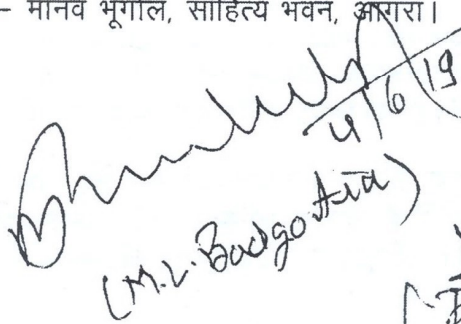 – मानव भूगोल, साहित्य भवन, आगरा।
4/6/19
(M.L. Badgotia)